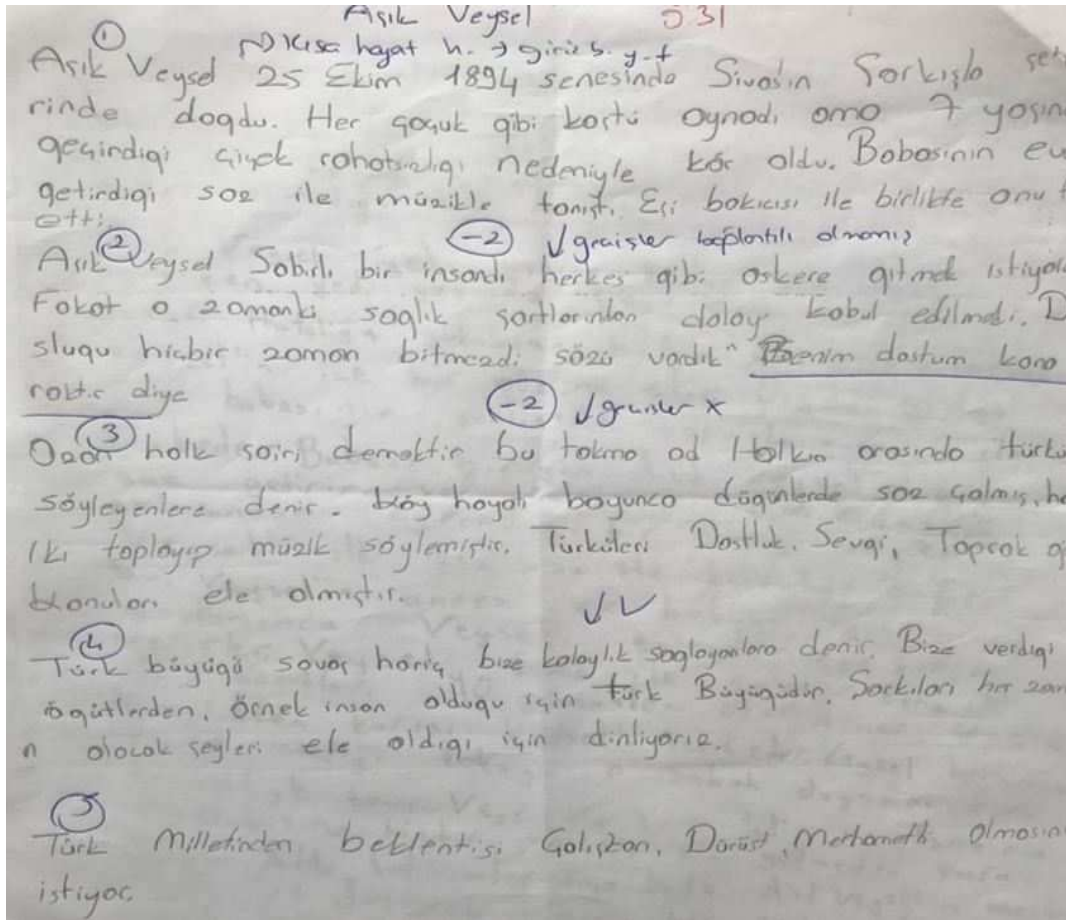 Aşık Veysel 531
①
→ Kısa hayat h. → giriş b. y-t
Aşık Veysel 25 Ekim 1894 senesinda Sivas'ın Şarkışla şeh
rinde dogdu. Her çoçuk gibi koştu oynadı ama 7 yaşın
geçirdigi çiçek rahatsızlıgı nedeniyle kör oldu. Babasının ev
getirdigi saz ile müzikle tanıştı. Eşi bakıcısı ile birlikte onu t
etti.
② -2 ✓ geçişler bağlantılı olmamış
Aşık Veysel Sabırlı bir insandı herkes gibi askere gitmek istiyor
Fakat o zamanki saglık şartlarından dolayı kabul edilmedi. D
slugu hiçbir zaman bitmezdi sözü vardır" Benim dostum kara
raktır diye
③ -2 ✓ geçişler x
Ozan halk şairi demektir bu takma ad Halkın arasında türkü
söyleyenlere denir. hayatı boyunca dügünlerde saz çalmış, ha
lkı toplayıp müzik söylemiştir. Türküleri Dostluk, Sevgi, Toprak gi
konuları ele almıştır.
④ ✓✓
Türk büyügü savaş hariç bize kolaylık saglayanlara denir. Bize verdigi
ögütlerden, örnek insan oldugu için türk Büyügüdür. Şarkıları her zam
n olacak şeyleri ele aldıgı için dinliyoruz.
⑤
Türk Milletinden beklentisi Çalışkan, Dürüst, Merhametli olmasın
istiyor.